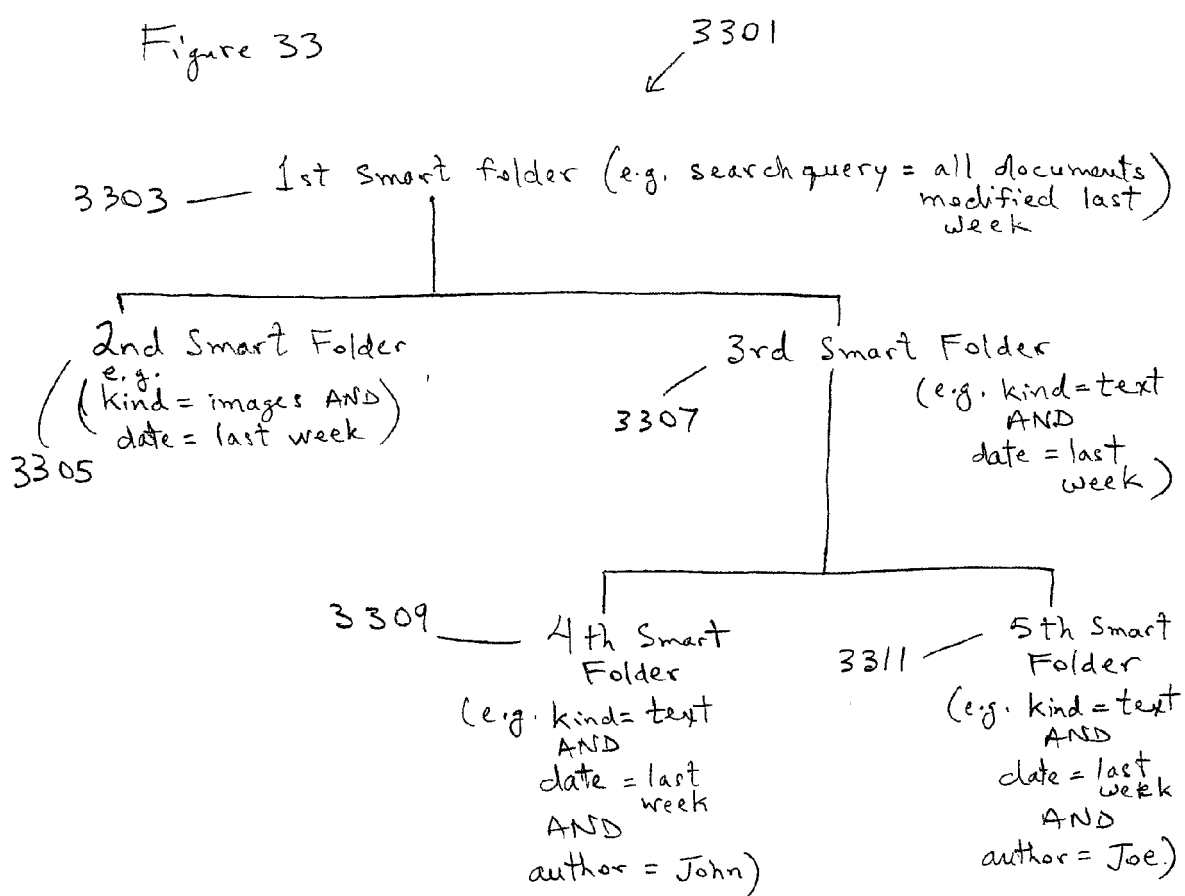 Figure 33
3301
3303
1st Smart folder (e.g. search query = all documents
modified last
week)
2nd Smart Folder
e.g.
(kind = images AND
date = last week)
3305
3rd Smart Folder
3307
(e.g. kind = text
AND
date = last
week)
3309
4th Smart
Folder
(e.g. kind = text
AND
date = last
week
AND
author = John)
3311
5th Smart
Folder
(e.g. kind = text
AND
date = last
week
AND
author = Joe.)